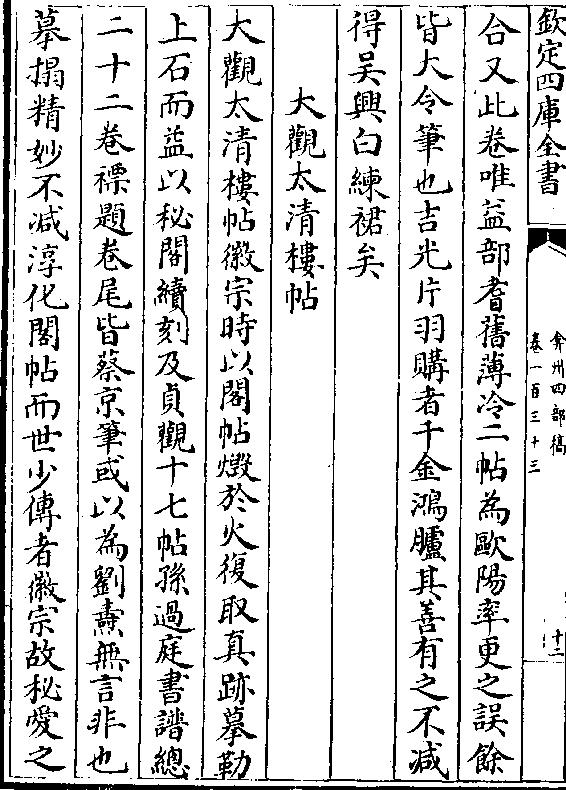 欽定四庫全書
弇州四部稿
卷一百三十三
十二
合又此卷唯益部耆舊薄冷二帖為歐陽率更之誤餘
皆大令筆也吉光片羽購者千金鴻臚其善有之不減
得吴興白練裙矣
大觀太清樓帖
大觀太清樓帖徽宗時以閣帖燬於火復取真跡摹勒
上石而益以秘閣續刻及貞觀十七帖孫過庭書譜總
二十二卷褾題卷尾皆蔡京筆或以為劉燾無言非也
摹搨精妙不减淳化閣帖而世少傳者徽宗故秘愛之